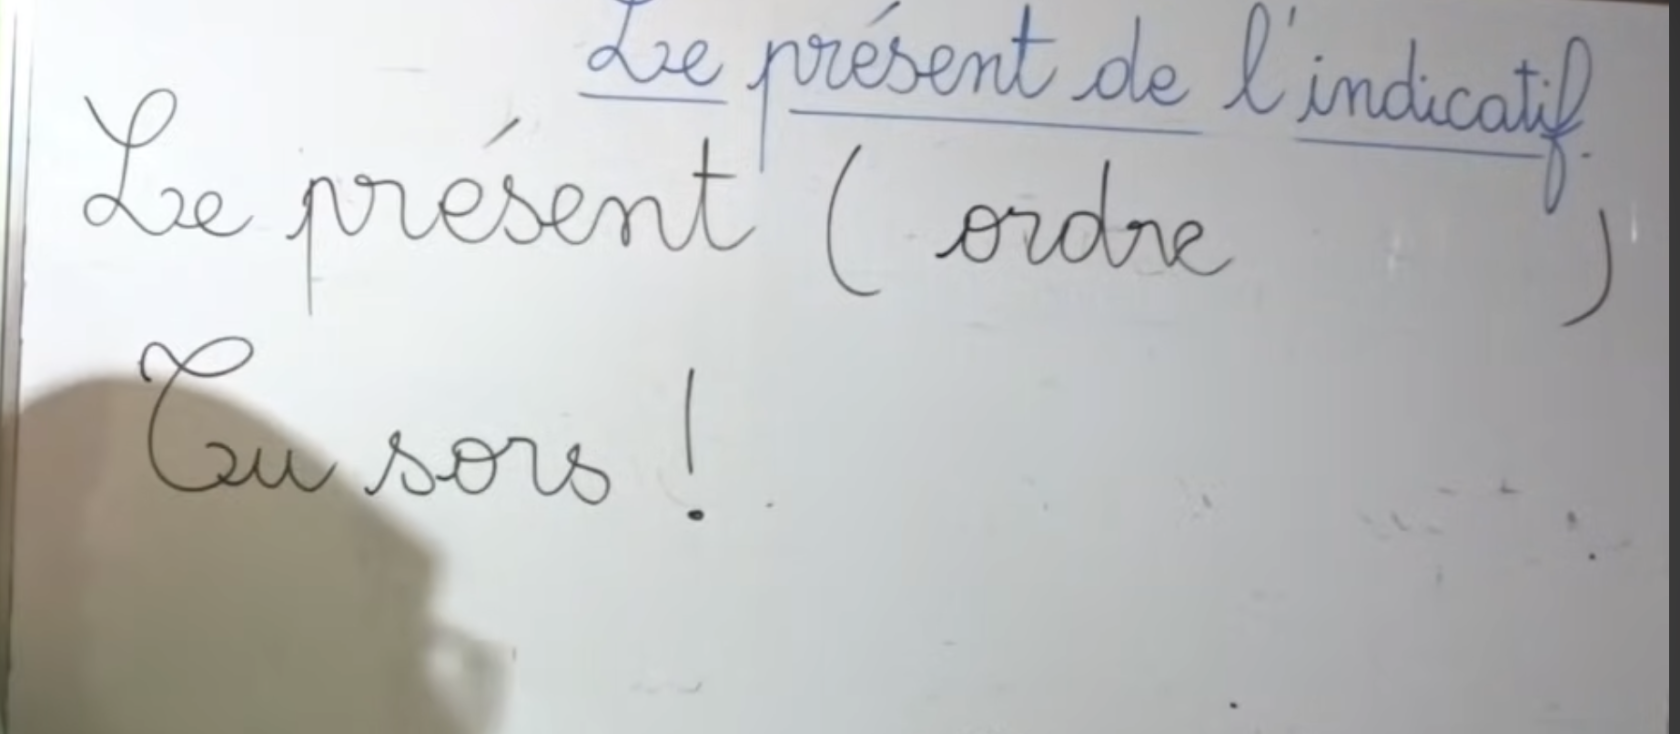 Le présent de l'indicatif.
Le présent ( ordre )
Tu sors !